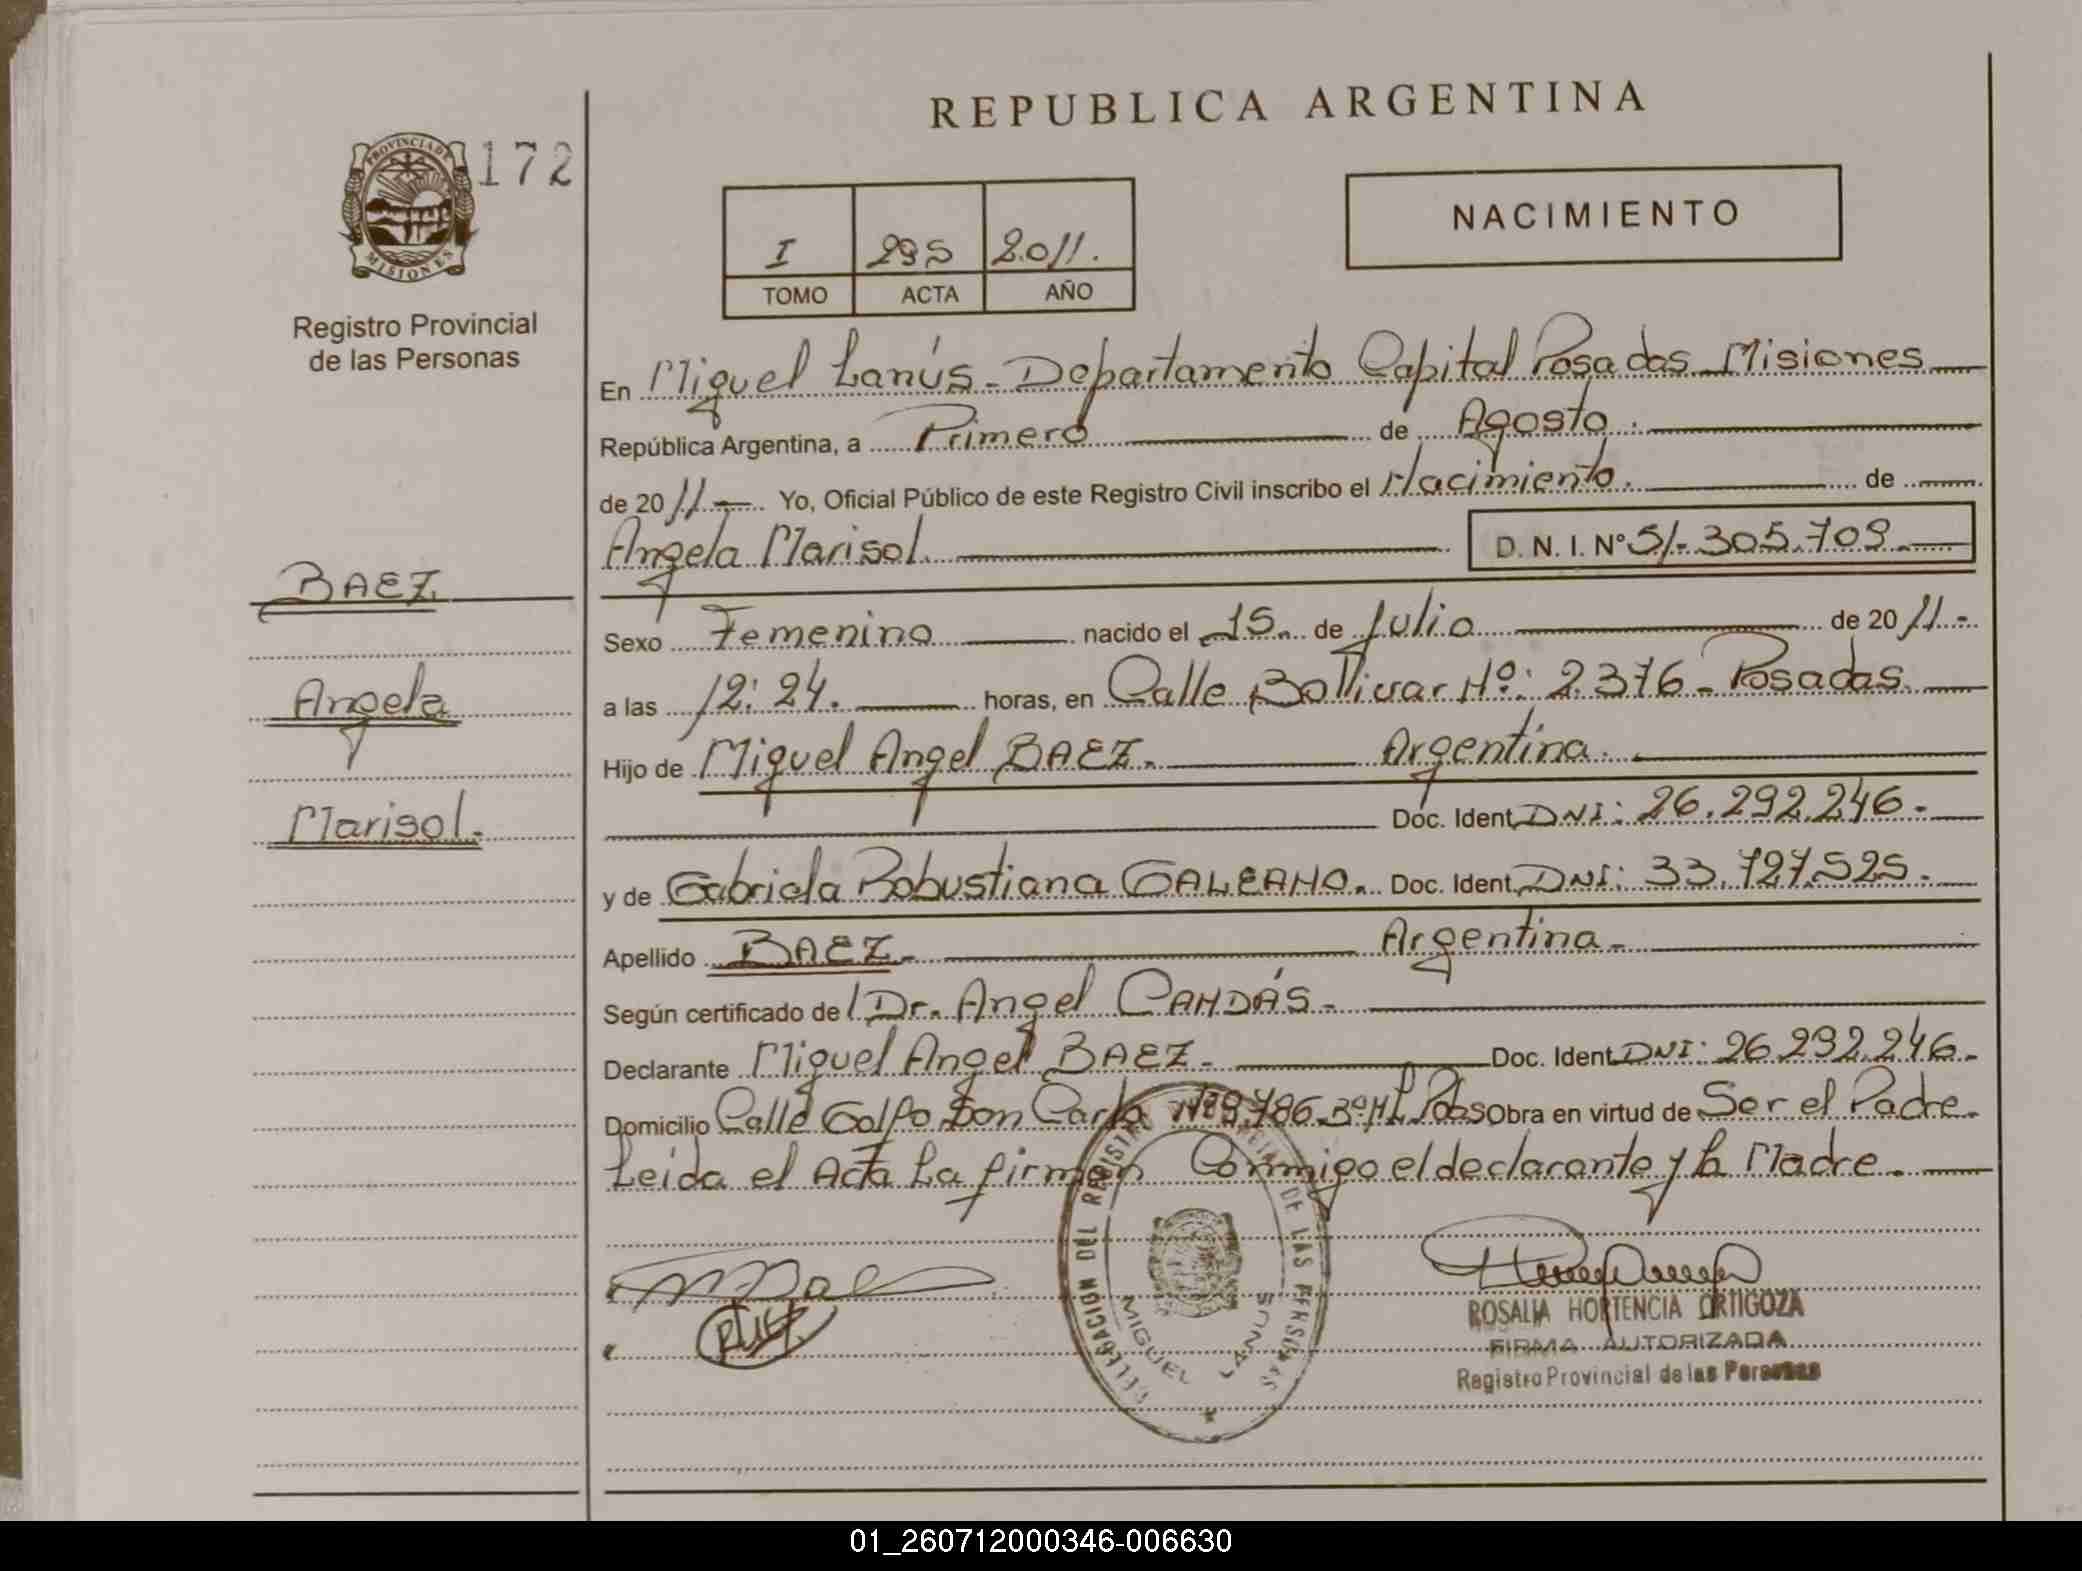 REPUBLICA ARGENTINA
172
PROVINCIA DE
MISIONES
Registro Provincial
de las Personas
I 295 2.011.
TOMO ACTA AÑO
NACIMIENTO
En Miguel Lanús - Departamento Capital Posadas - Misiones
República Argentina, a Primero de Agosto.
de 2011.- Yo, Oficial Público de este Registro Civil inscribo el Nacimiento. de
Angela Marisol. D. N. I. N° 51.305.709
BAEZ
Angela
Marisol.-
Sexo Femenino nacido el 15 de Julio de 2011.-
a las 12:24. horas, en Calle Bollivar Nº: 2.376 - Posadas.
Hijo de Miguel Angel BAEZ. Argentina.
Doc. Ident. DNI: 26.292.246.-
y de Gabriela Robustiana GALEANO. Doc. Ident. DNI: 33.727.525.-
Apellido BAEZ.- Argentina.-
Según certificado de Dr. Angel CANDÁS.-
Declarante Miguel Angel BAEZ.- Doc. Ident. DNI: 26.292.246.-
Domicilio Calle Golfo Don Carlo Nº 9.786 Obra en virtud de Ser el Padre.
Leida el Acta La firman Conmigo el declarante y la Madre.
DELEGACION DEL REGISTRO PROVINCIAL DE LAS PERSONAS
MIGUEL LANUS
ROSALIA HORTENCIA ORTIGOZA
FIRMA AUTORIZADA
Registro Provincial de las Personas
01_260712000346-006630